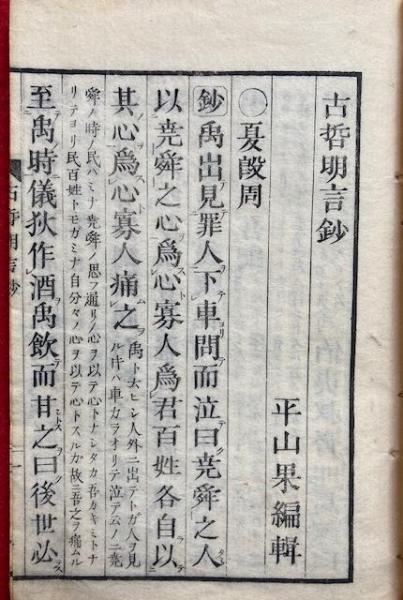 古哲明言鈔
平山果編輯
○夏殷周
鈔禹出見罪人下車問而泣曰堯舜之人
以堯舜之心爲心寡人爲君百姓各自以
其心爲心寡人痛之
人外ニ出テトガ人ヲ見
車カラオリテ泣テ云ノニ堯
舜ノ時ノ民ハミナ堯舜ノ思フ通リノ心ヲ以テ心トナシタカ吾カキミトナ
リテヨリ民百姓トモガミナ自分々ノ心ヲ以テ心トスルカ故ニ吾之ヲ痛ムル
至禹時儀狄作酒禹飲而甘之曰後世必
古哲明言鈔